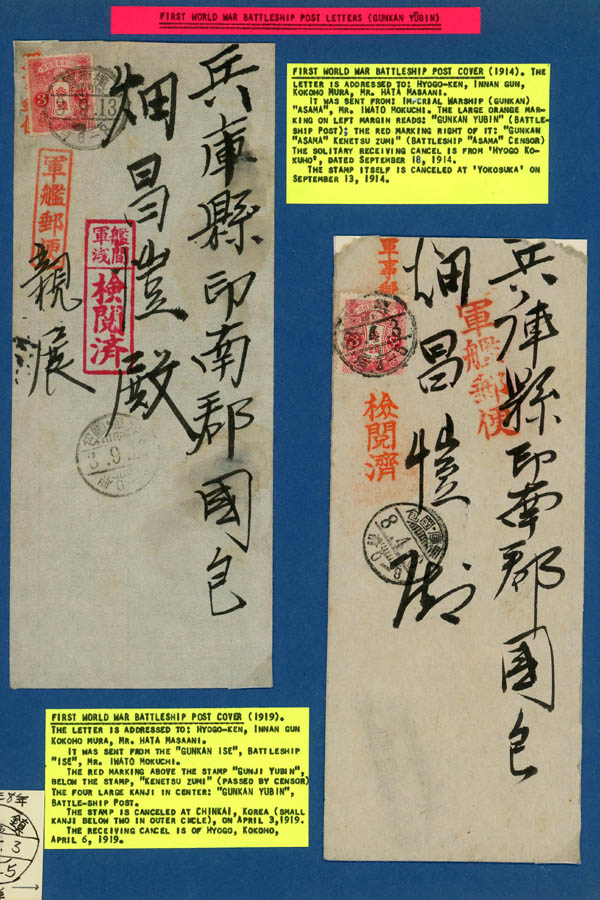 FIRST WORLD WAR BATTLESHIP POST LETTERS (GUNKAN YŪBIN)
FIRST WORLD WAR BATTLESHIP POST COVER (1914). THE
LETTER IS ADDRESSED TO: HYOGO-KEN, INNAN GUN,
KOKOHO MURA, MR. HATA MASAANI.
IT WAS SENT FROM: IMPERIAL WARSHIP (GUNKAN)
"ASAMA", MR. IWATO MOKUCHI. THE LARGE ORANGE MAR-
KING ON LEFT MARGIN READS: "GUNKAN YUBIN" (BATTLE-
SHIP POST); THE RED MARKING RIGHT OF IT: "GUNKAN
"ASAMA" KENETSU ZUMI" (BATTLESHIP "ASAMA" CENSOR)
THE SOLITARY RECEIVING CANCEL IS FROM 'HYOGO KO-
KUHO', DATED SEPTEMBER 18, 1914.
THE STAMP ITSELF IS CANCELED AT 'YOKOSUKA' ON
SEPTEMBER 13, 1914.
兵庫縣印南郡國包
畑昌豈殿
親展
軍艦郵便
軍艦
浅間
検閲済
3.9
兵庫縣印南郡国包
畑昌愷
軍事郵
軍艦郵便
検閲濟
8.4
FIRST WORLD WAR BATTLESHIP POST COVER (1919).
THE LETTER IS ADDRESSED TO: HYOGO-KEN, INNAN GUN
KOKOHO MURA, MR. HATA MASAANI.
IT WAS SENT FROM THE "GUNKAN ISE", BATTLESHIP
"ISE", MR. IWATO MOKUCHI.
THE RED MARKING ABOVE THE STAMP "GUNJI YUBIN",
BELOW THE STAMP, "KENETSU ZUMI" (PASSED BY CENSOR)
THE FOUR LARGE KANJI IN CENTER: "GUNKAN YUBIN",
BATTLE-SHIP POST.
THE STAMP IS CANCELED AT CHINKAI, KOREA (SMALL
KANJI BELOW TWO IN OUTER CIRCLE), ON APRIL 3,1919.
THE RECEIVING CANCEL IS OF HYOGO, KOKOHO,
APRIL 6, 1919.
8年
鎮
3